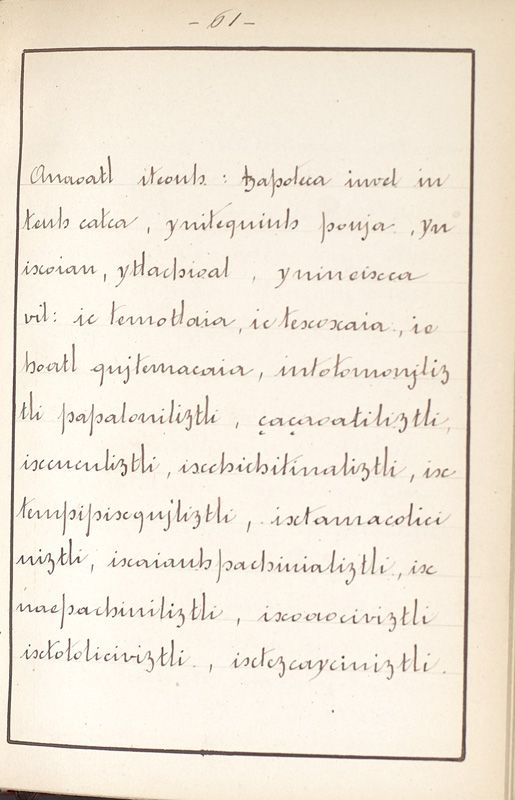 - 61 -
Anaoatl iteouh : tzapoteca invel in
teuh catca, ynitequiuh pouja, yn
ixcoian, ytlachioal, ynineixca
vil: ic temotlaia, ic texoxaia, ie
hoatl qujtemacaia, intotomonjliz
tli papaloniliztli, çaçaoatiliztli,
ixcuculiztli, ixchichitinaliztli, ix
tempipixqujliztli, ixtamacolici
niztli, ixaiauhpachiuializtli, ix
naepachiuiliztli, ixoaociviztli
ixtotoliciviztli., ixtezcayciniztli.